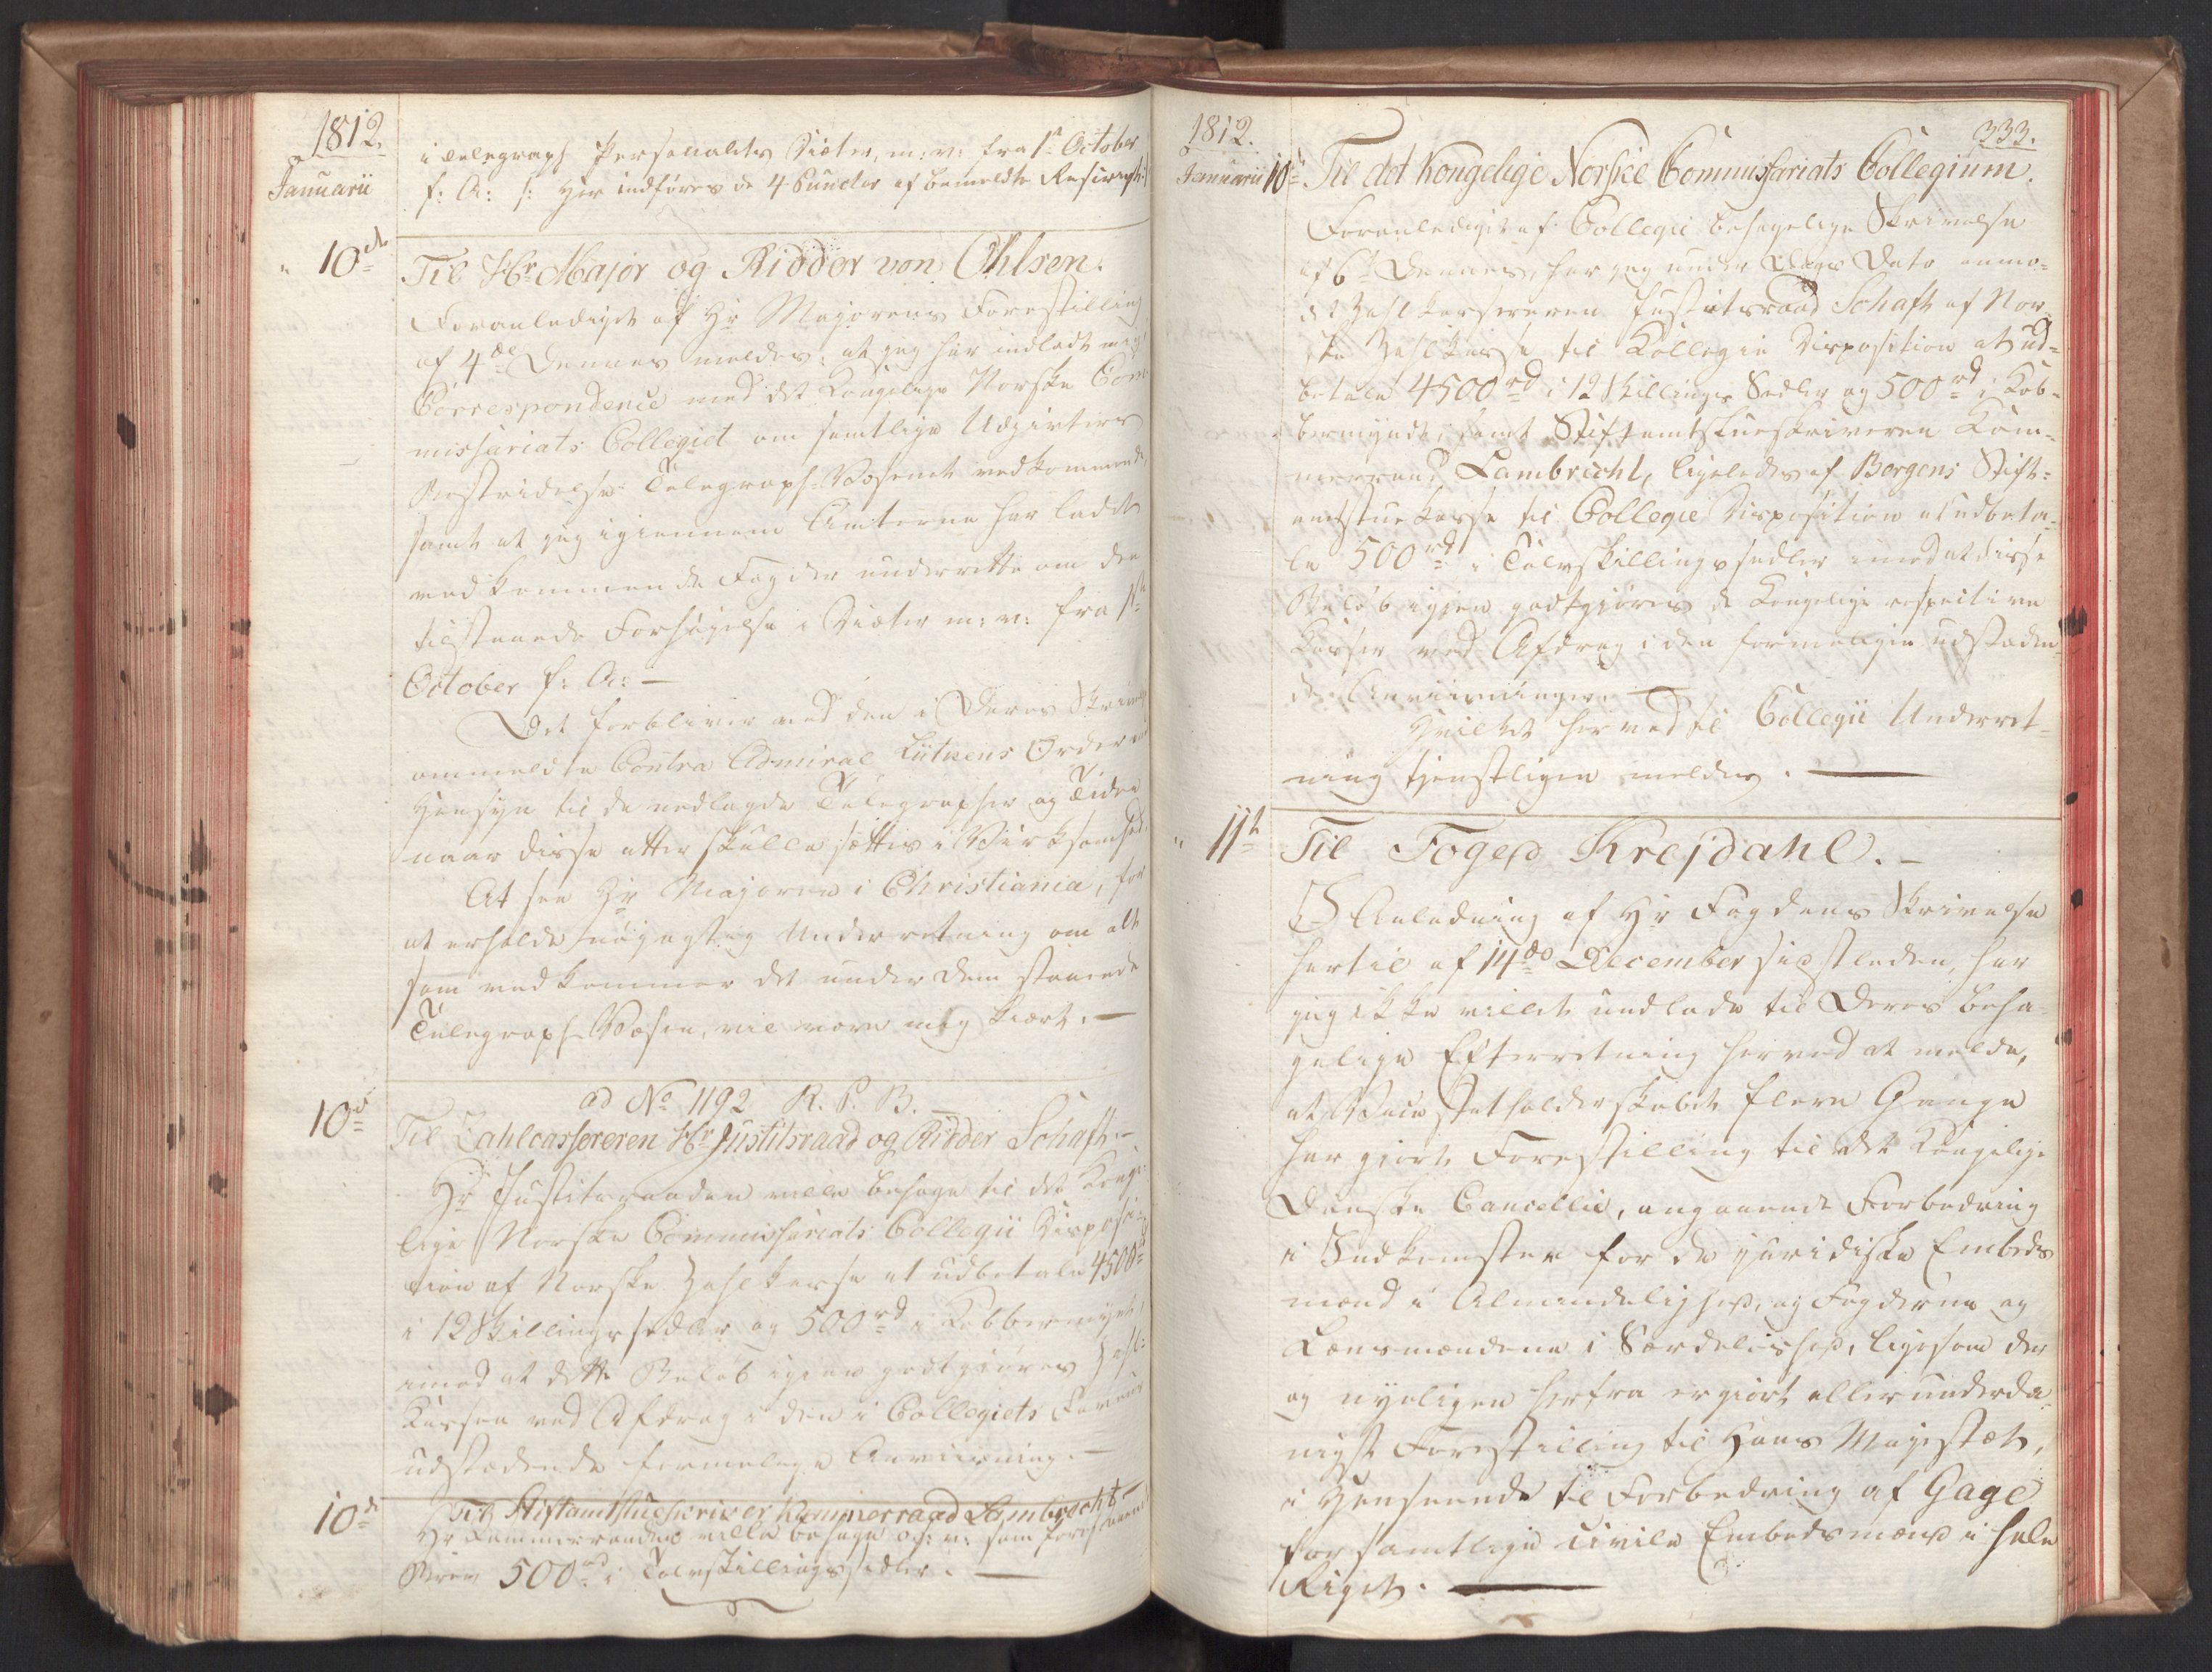 1812.
Januarii
i Telegraph Personalets Diæter, m: v: fra 1ste October
f: A: /: Her indføres de 4 Puncter af bemeldte
10de
Til Hr. Major og Ridder von Ohlsen.
Foranlediget af Hr Majorens Forestilling
af 4de Dennes meldes: at jeg har indladt mig i
Correspondence med det Kongelige Norske Com¬
missariats Collegiet om samtlige Udgivters
Bestridelse Telegraph-Væsenet vedkommende
samt at jeg igiennem Amterne har ladet
vedkommende Fogder underrette om den
tilstaaede Forhøielse i Diæter m: v: fra 1ste
October f: A: —
Det forbliver ved den i Deres Skrivelse
ommeldte Contra Admiral Lütkens Ordre med
Hensyn til de nedlagde Telegrapher og Tiden
naar disse atter skulle sættes i Virksomhed.
At see Hr Majoren i Christiania, for
at erholde nøiagtig Underretning om alt
som vedkommer det under Dem staaende
Telegraph-Væsen, vil være mig kiært. —
ad No 1192 R. P. B. —
10de
Til Zahlcassereren Hr Justitsraad og Ridder Schaft. —
Hr Justitsraaden ville behage til det Konge¬
lige Norske Commissariats Collegii Disposi¬
tion af Norske Zahlkasse at udbetale 4500rd
i 12 Skillingssedler og 500rd i Kobbermynt,
imod at dette Beløb igien godtgiøres Zahl¬
Kassen ved Afdrag i den i Collegiets Faveur
udstædende formelige Anviisning. —
10de
Til Stiftamtstueskriver Kammerraad Lambrecht —
Hr Kammerraaden ville behage o: s: v: som foregaaende
Brev 500rd i Tolvskillingssedler. —
1812.
333.
Januarii 10de
Til det Kongelige Norske Commissariats Collegium.
Foranlediget af Collegii behagelige Skrivelse
af 6te Dennes, har jeg under Dags Dato anmo¬
det Zahlkassereren Justitsraad Schaft af Nor¬
ske Zahlkasse til Collegii Disposition at ud¬
betale 4500rd i 12 Skillings Sedler og 500rd i Kob¬
bermynt; samt Stiftamtstueskriveren Kam¬
merraad Lambrecht, ligeledes af Bergens Stift¬
amtstuekasse til Collegii Disposition at udbeta¬
le 500rd i Tolvskillingssedler imod at disse
Beløb igien godtgiøres de Kongelige respective
Kasser ved Afdrag i den formeligen udstæden¬
de Anviisninger. —
Hvilket herved til Collegii Underret¬
ning tienstligen meldes. —
11te
Til Foged Krejdahl. —
I Anledning af Hr Fogdens Skrivelse
hertil af 14de December sidstleden, har
jeg ikke villet undlade til Deres beha¬
gelige Efterretning herved at melde,
at Vice Statholderskabet flere Gange
har giort Forestilling til det Kongelige
Danske Cancellie, angaaende Forbedring
i Indkomster for de juridiske Embeds
mænd i Almindelighed, og Fogderne og
Lensmændene i Særdeleshed, ligesom der
og nyeligen herfra er giort allerunderda¬
nigst Forestilling til Hans Majestæt,
i Henseende til Forbedring af Gage
for samtlige civile Embedsmænd i hele
Riget. —